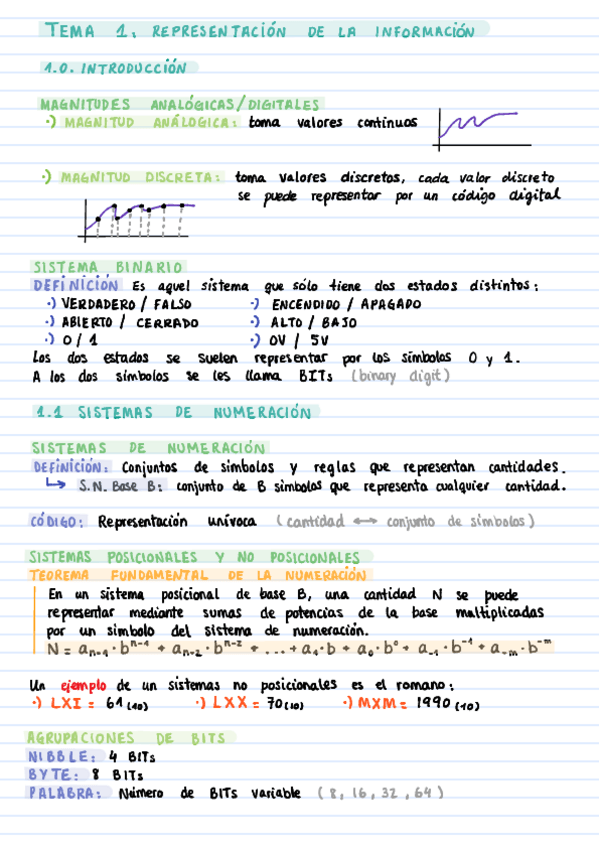 TEMA 1. REPRESENTACIÓN DE LA INFORMACIÓN
1.0. INTRODUCCIÓN
MAGNITUDES ANALÓGICAS/DIGITALES
·) MAGNITUD ANÁLOGICA: toma valores continuos
·) MAGNITUD DISCRETA: toma valores discretos, cada valor discreto
se puede representar por un código digital
SISTEMA BINARIO
DEFINICIÓN Es aquel sistema que sólo tiene dos estados distintos:
·) VERDADERO / FALSO ·) ENCENDIDO / APAGADO
·) ABIERTO / CERRADO ·) ALTO / BAJO
·) 0 / 1 ·) 0V / 5V
Los dos estados se suelen representar por los símbolos 0 y 1.
A los dos símbolos se les llama BITs (binary digit)
1.1 SISTEMAS DE NUMERACIÓN
SISTEMAS DE NUMERACIÓN
DEFINICIÓN: Conjuntos de símbolos y reglas que representan cantidades.
↳ S.N. Base B: conjunto de B símbolos que representa cualquier cantidad.
CÓDIGO: Representación unívoca (cantidad ↔ conjunto de símbolos)
SISTEMAS POSICIONALES Y NO POSICIONALES
TEOREMA FUNDAMENTAL DE LA NUMERACIÓN
En un sistema posicional de base B, una cantidad N se puede
representar mediante sumas de potencias de la base multiplicadas
por un símbolo del sistema de numeración.
N = aₙ₋₁ · bⁿ⁻¹ + aₙ₋₂ · bⁿ⁻² + ... + a₁ · b + a₀ · b⁰ + a₋₁ · b⁻¹ + a₋ₘ · b⁻ᵐ
Un ejemplo de un sistemas no posicionales es el romano:
·) LXI = 61 (10) ·) LXX = 70 (10) ·) MXM = 1990 (10)
AGRUPACIONES DE BITS
NIBBLE: 4 BITs
BYTE: 8 BITs
PALABRA: Número de BITs variable (8, 16, 32, 64)